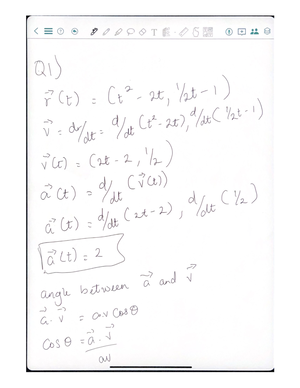 Q1)
r⃗(t) = (t² - 2t, 1/2t - 1)
v⃗ = dr/dt = d/dt (t² - 2t), d/dt (1/2t - 1)
v⃗(t) = (2t - 2, 1/2)
a⃗(t) = d/dt (v⃗(t))
a⃗(t) = d/dt (2t - 2), d/dt (1/2)
a⃗(t) = 2
angle between a⃗ and v⃗
a⃗ . v⃗ = av cosθ
cosθ = a⃗ . v⃗
av